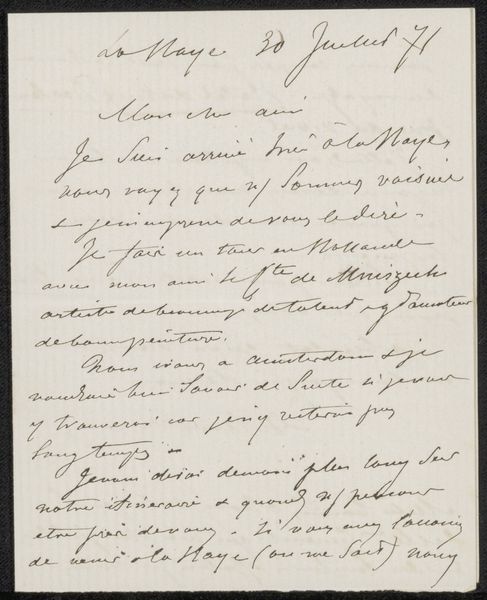 La Haye 30 Juillet 71
Mon cher ami
Je suis arrivé hier à la Haye,
vous voyez que ns/ sommes voisins
& je m'empresse de vous le dire.
Je fais un tour en Hollande
avec mon ami le Cte de Mniszech
artiste de beaucoup de talent & gd amateur
de bonne peinture.
Nous irons à Amsterdam & je
voudrais bien savoir de suite si je vous
y trouverai car je n'y resterai pas
longtemps.
Je vous dirai demain plus long sur
notre itinéraire & quand ns/ pourrons
être près de vous. Si vous avez l'occasion
de venir à la Haye (on ne sait) nous